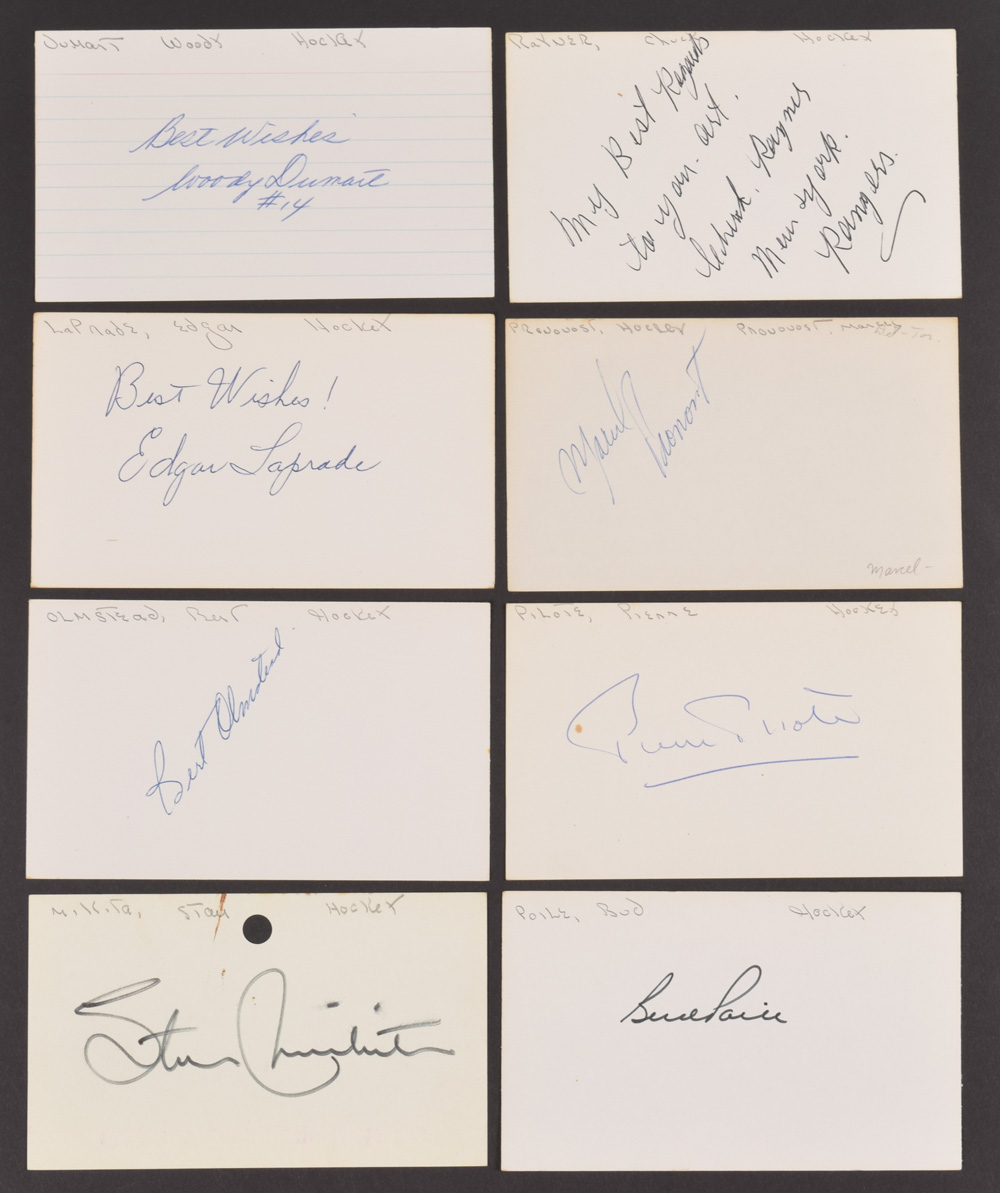 Dumart Woody Hockey
Best Wishes
Woody Dumart
#14
Rayner, Chuck Hockey
My Best Regards
to you. Art.
Chuck. Rayner
New York
Rangers.
LaPrade, Edgar Hockey
Best Wishes!
Edgar Laprade
Pronovost, Hockey Pronovost, Marcel
Marcel Pronovost
Marcel-
Olmstead, Bert Hockey
Bert Olmstead
Pilote, Pierre Hockey
Pierre Pilote
Mikita, Stan Hockey
Stan Mikita
Poile, Bud Hockey
Bud Poile